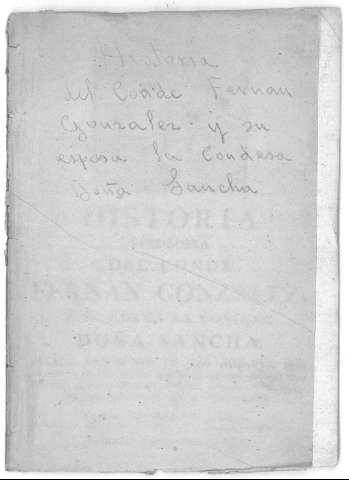 Historia
del Conde Fernan
Gonzalez y su
esposa la Condesa
Doña Sancha
HISTORIA
DEL CONDE
FERNAN GONZALEZ,
DOÑA SANCHA